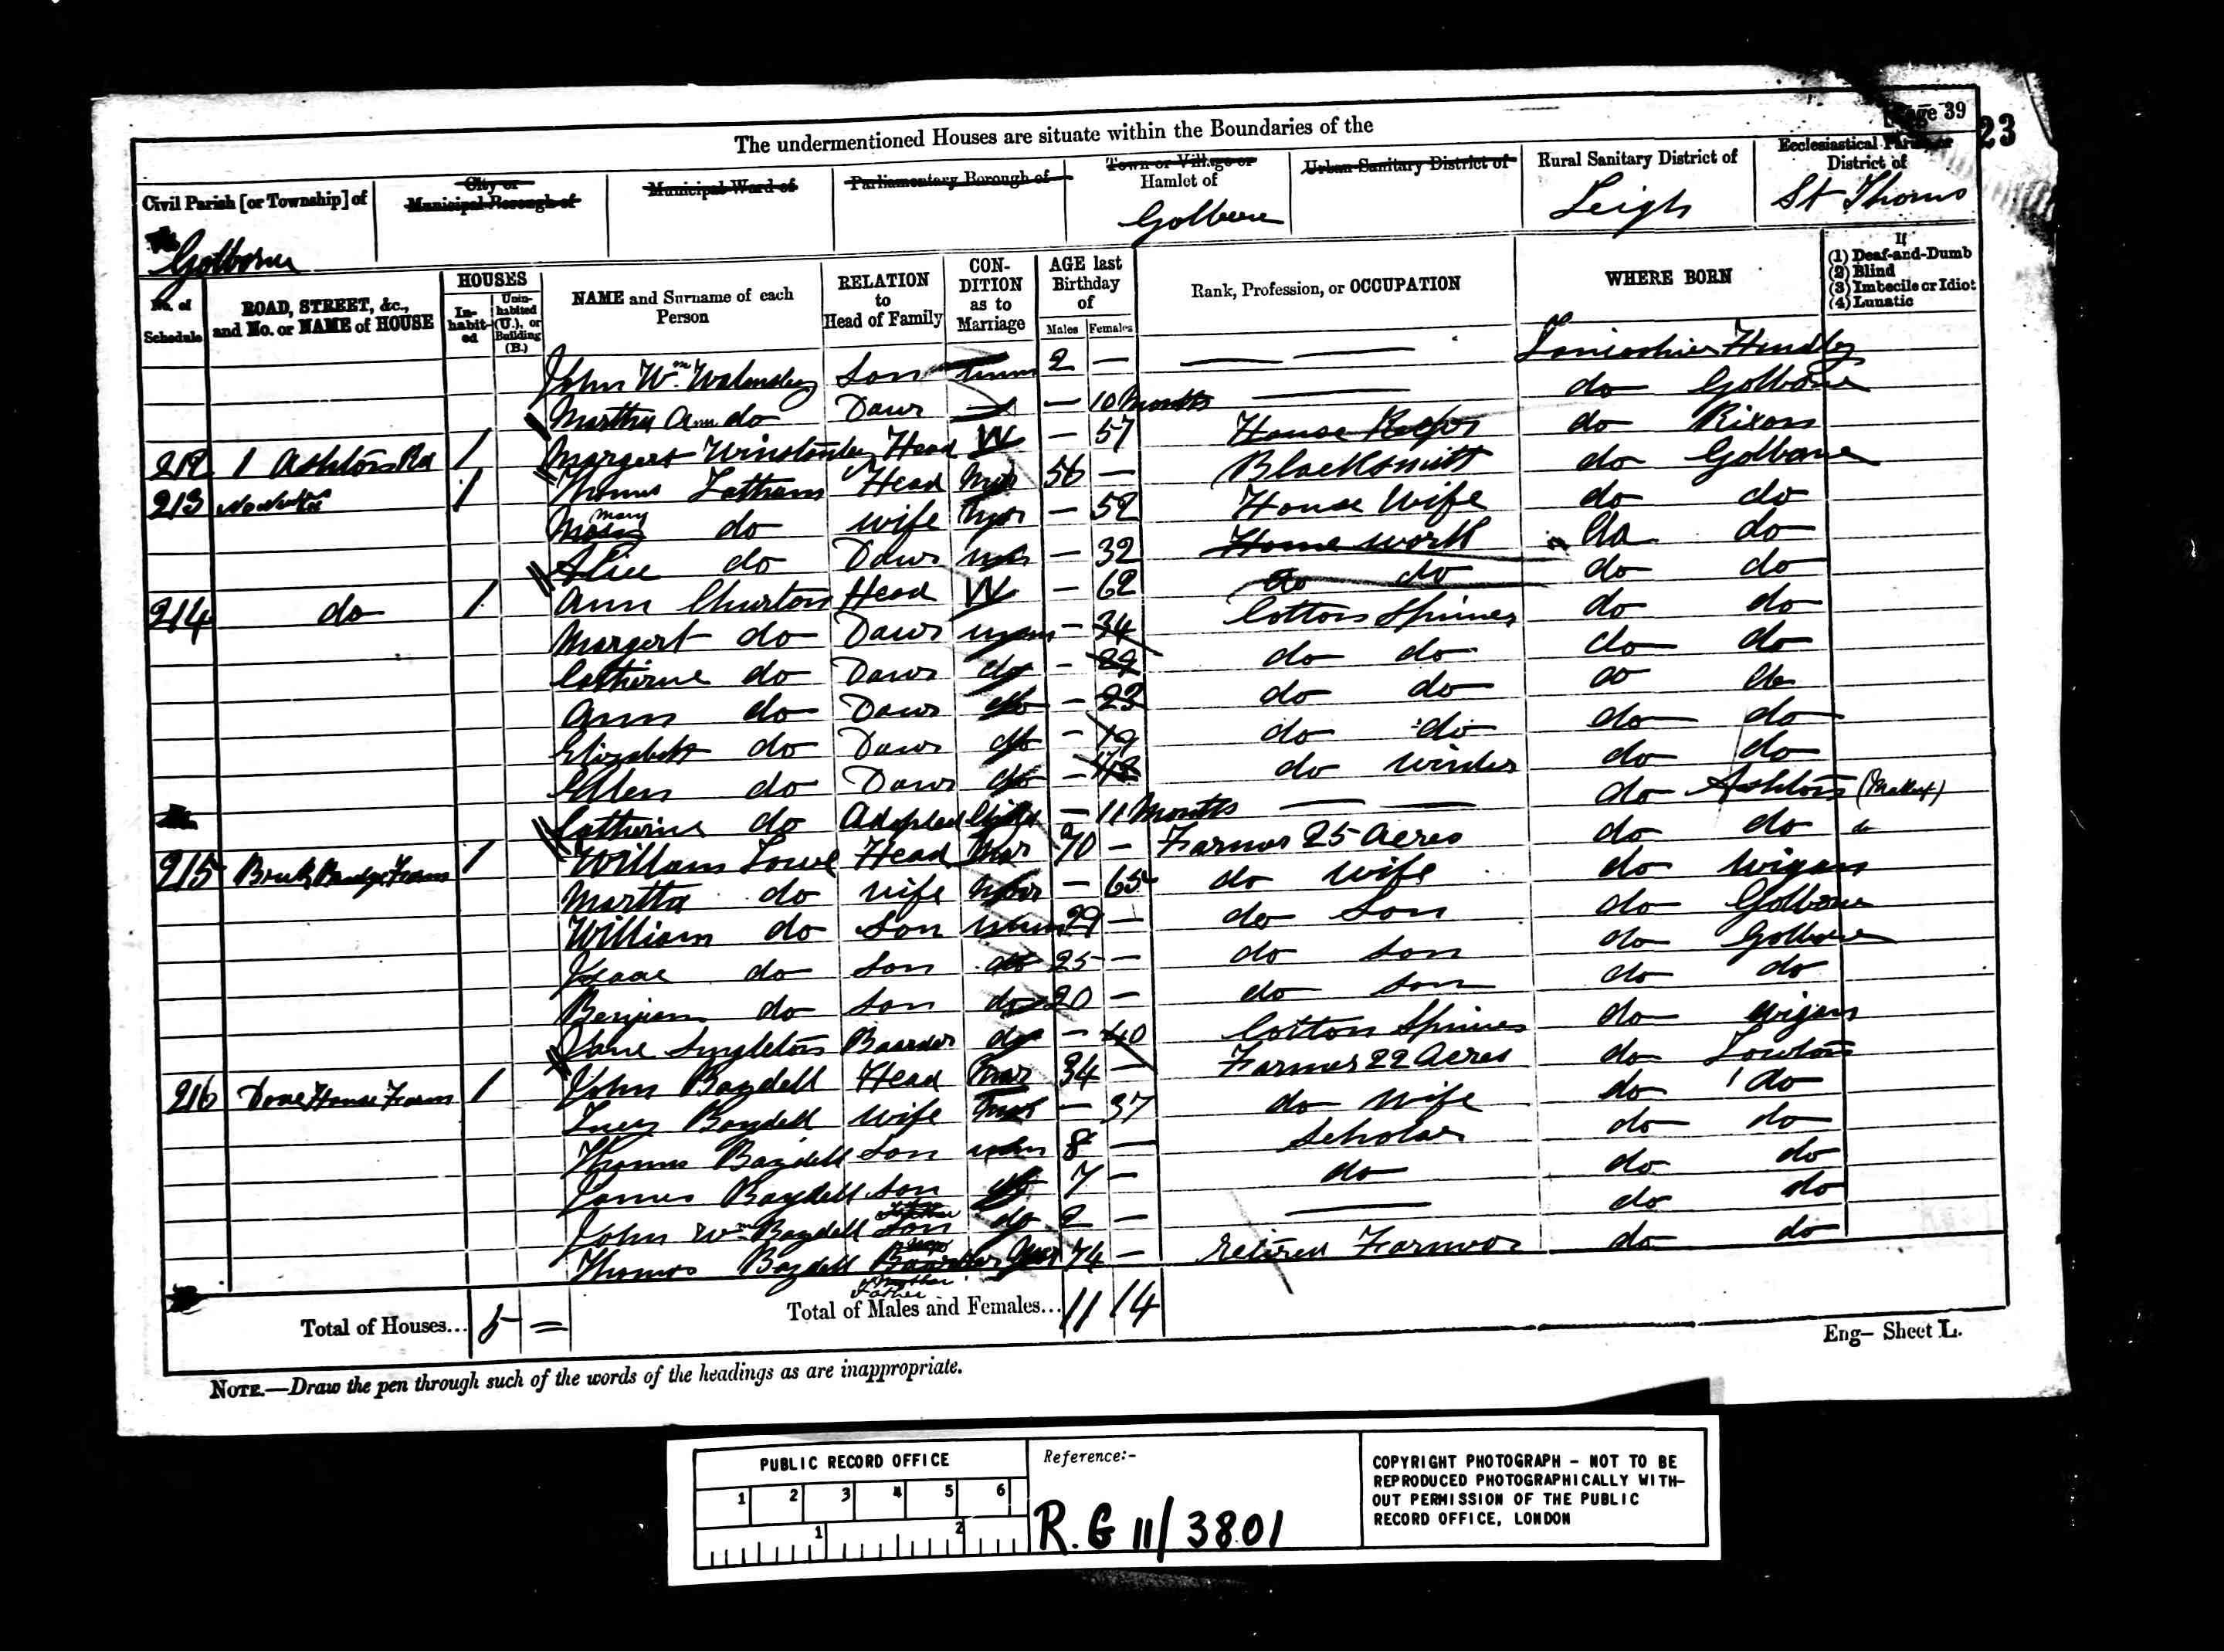 Page 39
23
The undermentioned Houses are situate within the Boundaries of the
Civil Parish [or Township] of
City or Municipal Borough of
Municipal Ward of
Parliamentary Borough of
Town or Village or Hamlet of
Urban Sanitary District of
Rural Sanitary District of
Ecclesiastical Parish or District of
Golborne
Golborne
Leigh
St Thomas
No. of Schedule
ROAD, STREET, &c., and No. or NAME of HOUSE
HOUSES
In-habit-ed
Unin-habited (U.), or Building (B.)
NAME and Surname of each Person
RELATION to Head of Family
CON-DITION as to Marriage
AGE last Birthday of
Males
Females
Rank, Profession, or OCCUPATION
WHERE BORN
If
(1) Deaf-and-Dumb
(2) Blind
(3) Imbecile or Idiot
(4) Lunatic
John Wm Walmsley Son 2 — Hindley
Martha Ann do Daur — 10 Months do Golborne
212 1 Ashton Rd 1 Margert Winstanley Head W — 57 House do Rixon
213 1 Thomas Latham Head Mar 56 — Blacksmith do Golborne
Mary do wife Mar — 52 House Wife do do
Alice do Daur — 32 Home work do do
214 do 1 Ann Churton Head W — 62 do do do do
Margert do Daur unm — 34 Cotton Spiner do do
Catherine do Daur do — do do do do
Ann do Daur do — 23 do do do do
Elizabeth do Daur do — 19 do do do do
Ellen do Daur do — do winder do do
Catherine do Adopted Child — 11 Months do Ashton
215 Farm 1 William Lowe Head Mar 70 — Farmer 25 Acres do do do
Martha do wife Mar — 65 do wife do Wigan
William do Son unm 29 — do Son do Golborne
Isaac do Son do 25 — do Son do Golborne
do Son do 20 — do Son do do
Jane Singleton do — 40 Cotton Spiner do Wigan
216 Dove House Farm 1 John Baydell Head Mar 34 — Farmer 22 Acres do Lowton
Lucy Baydell wife Mar — 37 do Wife do do
Thomas Baydell Son 8 — Scholar do do
James Baydell Son do 7 — do do do
John Wm Baydell Son do 2 — do do
Thomas Baydell Father 74 — retired Farmer do do
Total of Houses... 5 =
Total of Males and Females... 11 14
Eng— Sheet L.
NOTE.—Draw the pen through such of the words of the headings as are inappropriate.
PUBLIC RECORD OFFICE
1 2 3 4 5 6
1 2
Reference:-
R.G 11/3801
COPYRIGHT PHOTOGRAPH - NOT TO BE
REPRODUCED PHOTOGRAPHICALLY WITH-
OUT PERMISSION OF THE PUBLIC
RECORD OFFICE, LONDON